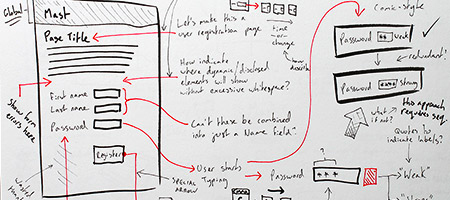 Global
Mast
Page Title
First name
Last name
Password
Register
Show term
errors here
Wasted
Let's make this a
user registration page
How indicate
where dynamic/disclosed
elements will show
without excessive whitespace?
Can't these be combined
into just a Name field?
User starts
typing
special
arrow
time
or
change
how
Comic-style
Password ** weak
redundant?
Password **** strong
what
if not?
this approach
requires seq.
Quotes to
indicate labels?
?
Password ***
"Weak"